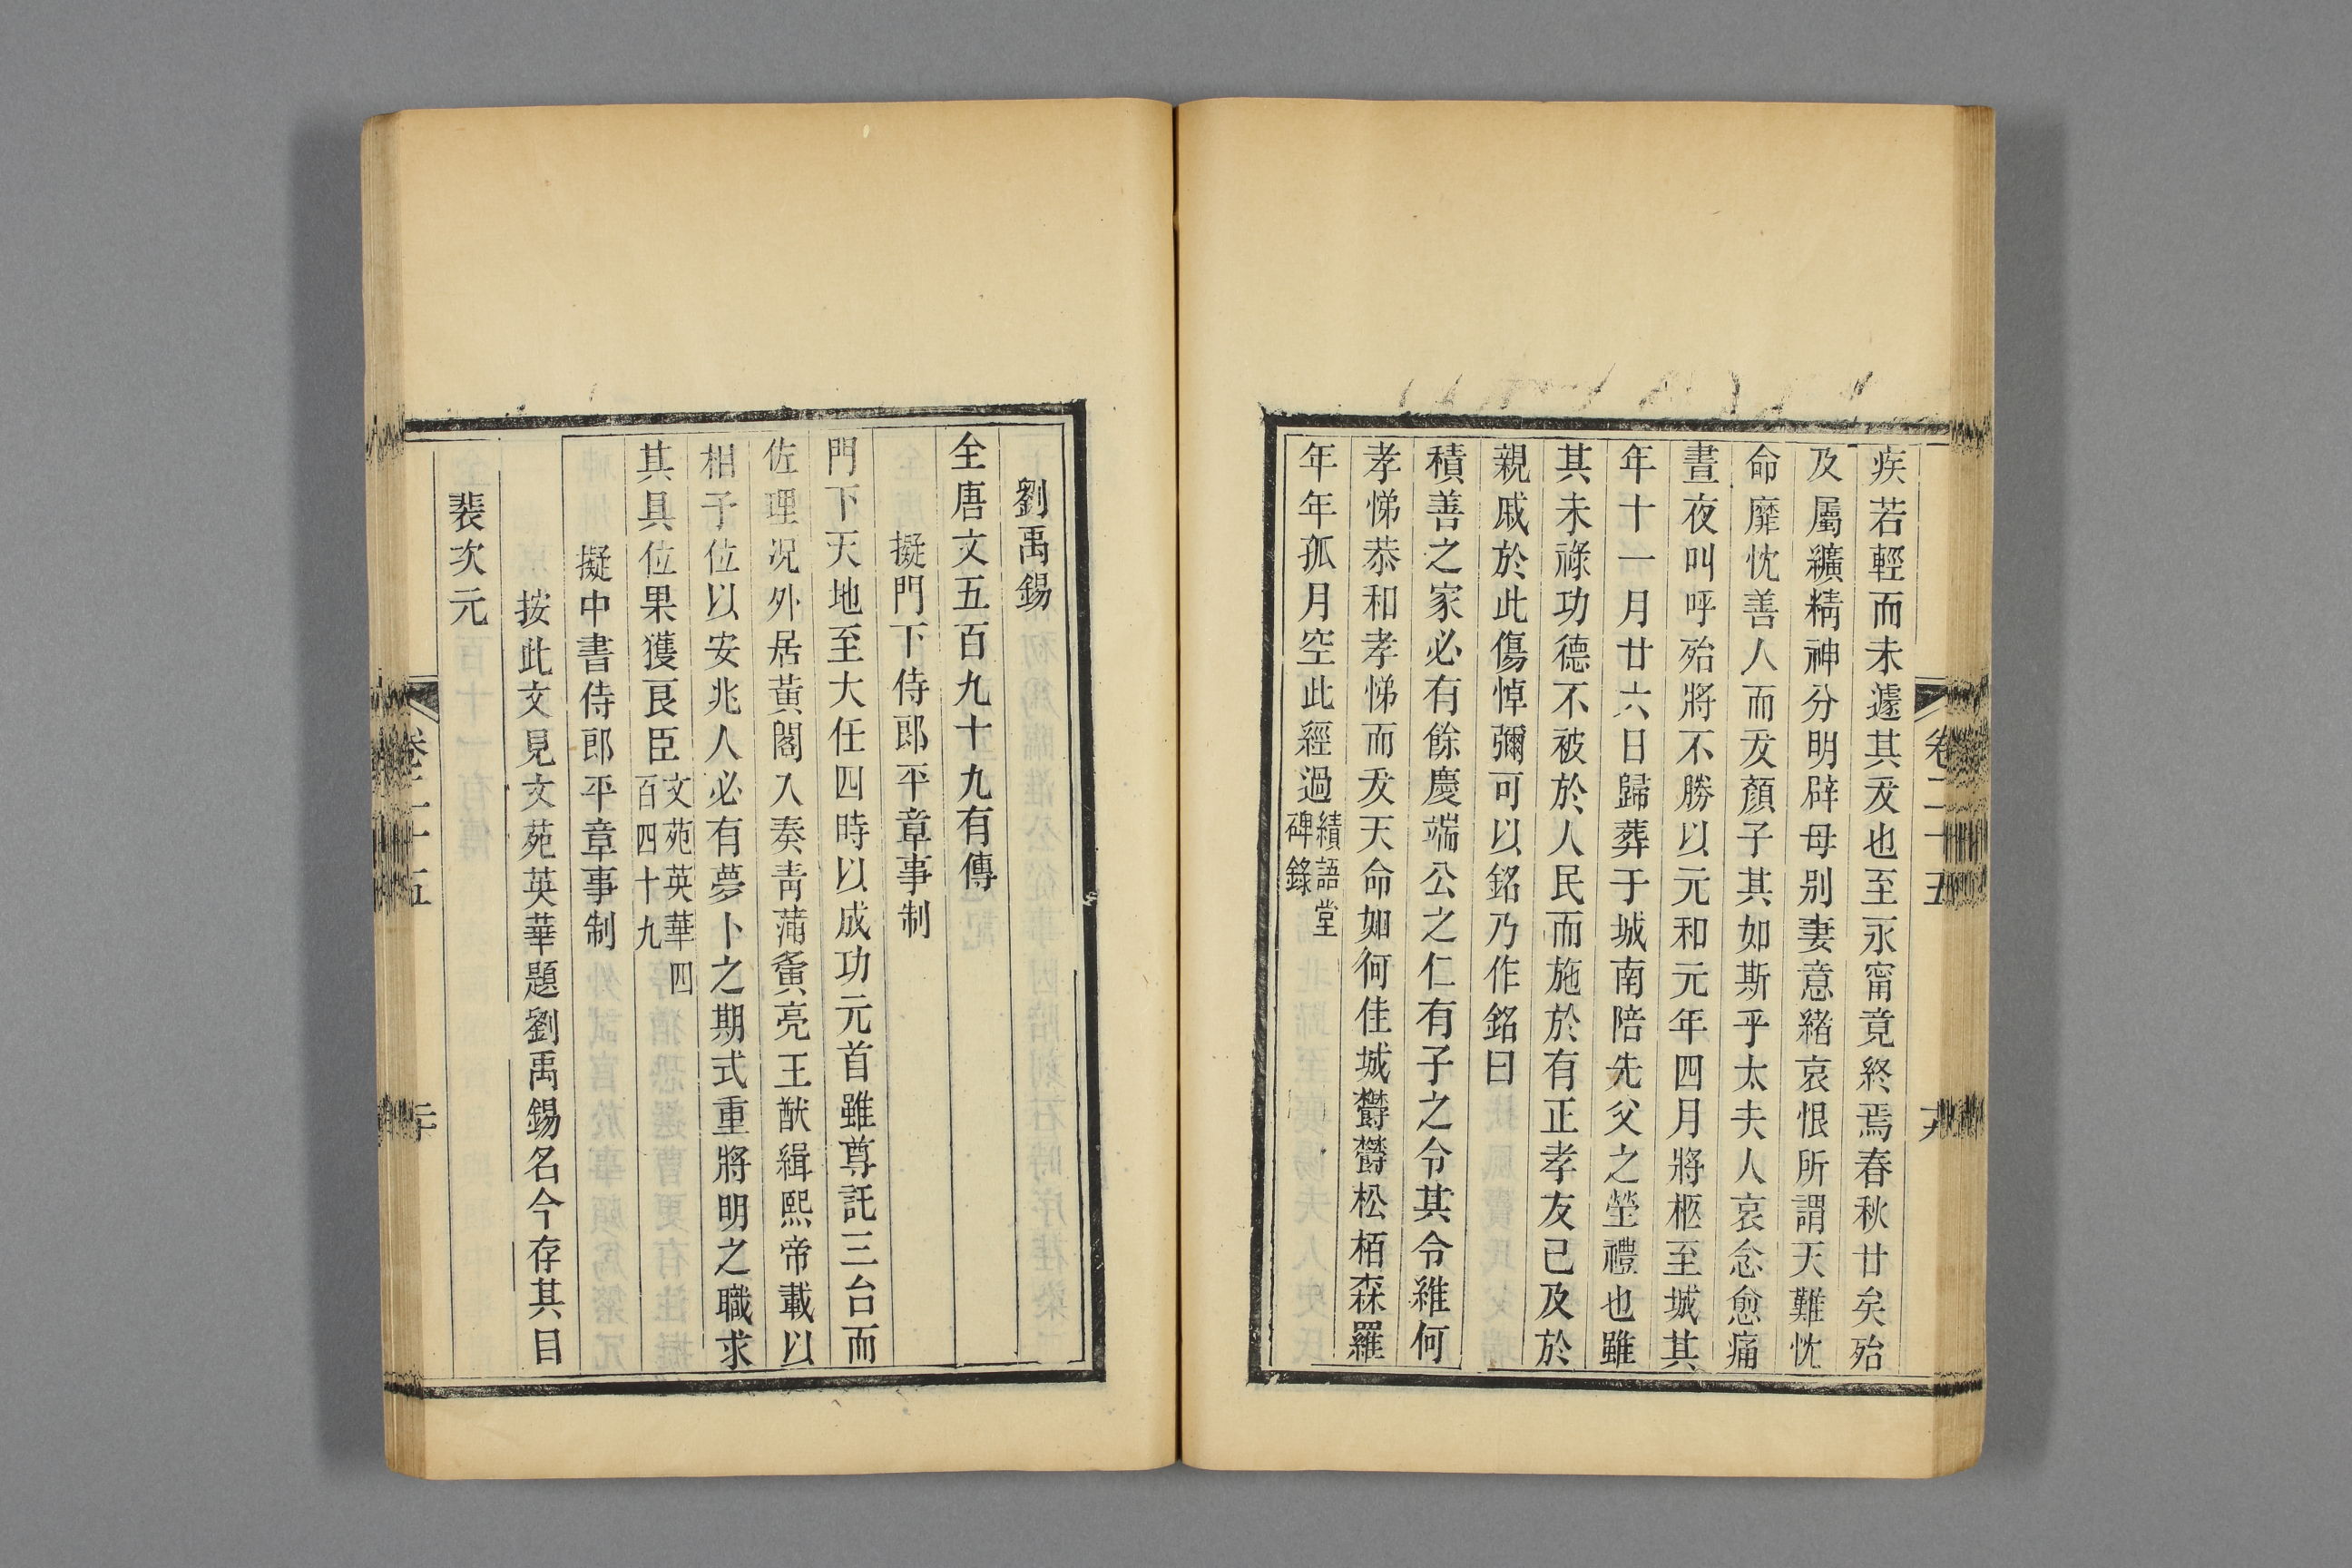 卷二十五
疾若輕而未遽其歿也至永甯竟終焉春秋廿矣殆
及屬纊精神分明辟母別妻意緒哀恨所謂天難忱
命靡忱善人而夭顏子其如斯乎太夫人哀念愈痛
晝夜叫呼殆將不勝以元和元年四月將柩至城其
年十一月廿六日歸葬于城南陪先父之塋禮也雖
其未祿功德不被於人民而施於有正孝友已及於
親戚於此傷悼彌可以銘乃作銘曰
積善之家必有餘慶端公之仁有子之令其令維何
孝悌恭和孝悌而夭天命如何佳城欝欝松栢森羅
年年孤月空此經過績語堂
碑錄
劉禹錫
全唐文五百九十九有傳
擬門下侍郎平章事制
門下天地至大任四時以成功元首雖尊託三台而
佐理况外居黃閣入奏青蒲夤亮王猷緝熙帝載以
相予位以安兆人必有夢卜之期式重將明之職求
其具位果獲良臣文苑英華四
百四十九
擬中書侍郎平章事制
按此文見文苑英華題劉禹錫名今存其目
裴次元
卷二十五